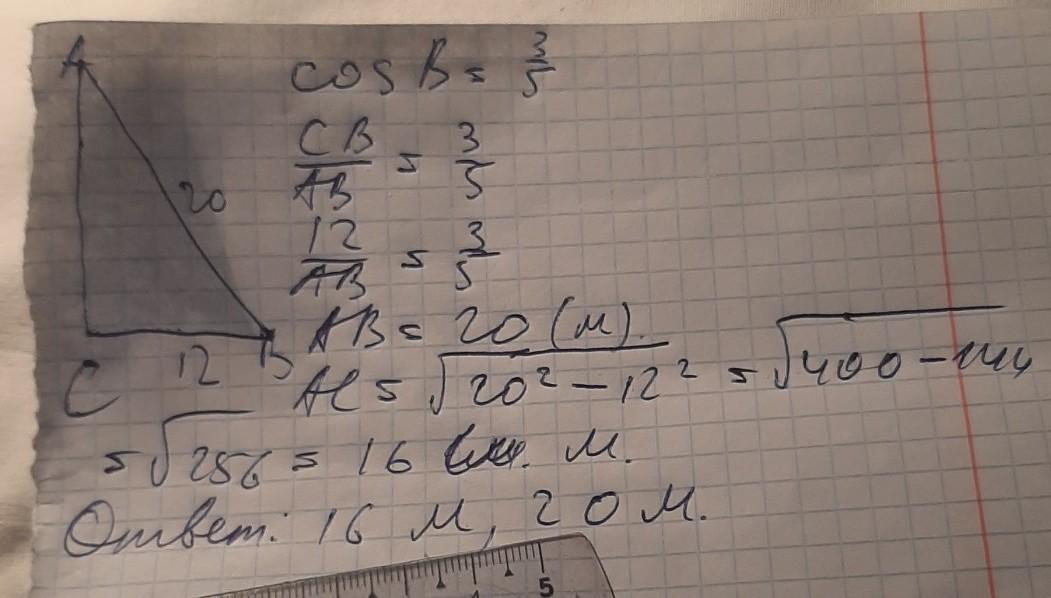 A
20
C
12
B
cos B = 3/5
CB/AB = 3/5
12/AB = 3/5
AB = 20 (м).
AC = √(20² − 12²) = √(400 − 144)
= √256 = 16 м.
Ответ: 16 м, 20 м.
5